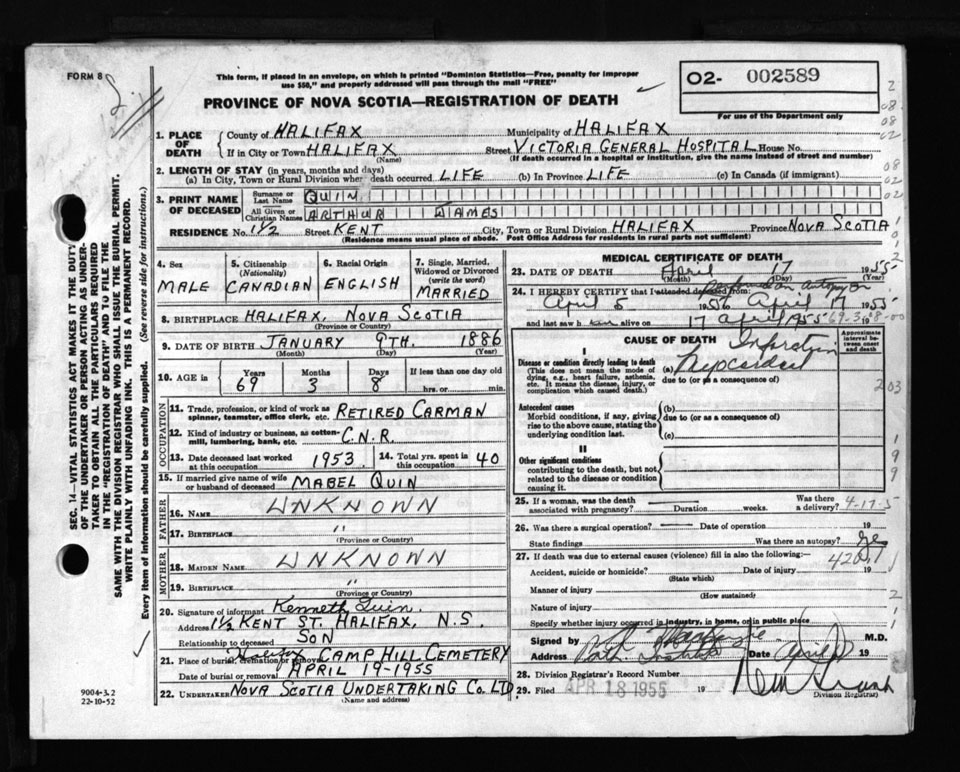 FORM 8
This form, if placed in an envelope, on which is printed "Dominion Statistics—Free, penalty for improper
use $50," and properly addressed will pass through the mail "FREE"
O2- 002589
For use of the Department only
PROVINCE OF NOVA SCOTIA—REGISTRATION OF DEATH
1. PLACE OF DEATH County of HALIFAX Municipality of HALIFAX
If in City or Town HALIFAX (Name) Street VICTORIA GENERAL HOSPITAL House No.
(If death occurred in a hospital or institution, give the name instead of street and number)
2. LENGTH OF STAY (in years, months and days)
(a) In City, Town or Rural Division where death occurred LIFE (b) In Province LIFE (c) In Canada (if immigrant)
3. PRINT NAME OF DECEASED Surname or Last Name QUIN
All Given or Christian Names ARTHUR JAMES
RESIDENCE No. 1 1/2 Street KENT City, Town or Rural Division HALIFAX Province NOVA SCOTIA
(Residence means usual place of abode. Post Office Address for residents in rural parts not sufficient)
4. Sex MALE
5. Citizenship (Nationality) CANADIAN
6. Racial Origin ENGLISH
7. Single, Married, Widowed or Divorced (write the word) MARRIED
8. BIRTHPLACE HALIFAX, NOVA SCOTIA
(Province or Country)
9. DATE OF BIRTH JANUARY 9TH. 1886
(Month) (Day) (Year)
10. AGE in Years 69 Months 3 Days 8 If less than one day old
hrs. or min.
OCCUPATION
11. Trade, profession, or kind of work as spinner, teamster, office clerk, etc. RETIRED CARMAN
12. Kind of industry or business, as cotton-mill, lumbering, bank, etc. C.N.R.
13. Date deceased last worked at this occupation 1953 14. Total yrs. spent in this occupation 40
15. If married give name of wife or husband of deceased MABEL QUIN
FATHER
16. NAME UNKNOWN
17. BIRTHPLACE "
(Province or Country)
MOTHER
18. MAIDEN NAME UNKNOWN
19. BIRTHPLACE "
(Province or Country)
20. Signature of informant Kenneth Quin.
Address 1 1/2 KENT ST. HALIFAX, N.S.
Relationship to deceased SON
21. Place of burial, cremation or removal Halifax CAMP HILL CEMETERY
Date of burial or removal APRIL 19-1955
22. UNDERTAKER NOVA SCOTIA UNDERTAKING CO. LTD.
(Name and address)
MEDICAL CERTIFICATE OF DEATH
23. DATE OF DEATH April 17 1955
(Month) (Day) (Year)
24. I HEREBY CERTIFY that I attended deceased from: performed an autopsy on
April 5 1956 April 17 1955
and last saw h him alive on 17 April 1955
CAUSE OF DEATH
Approximate interval between onset and death
I
Disease or condition directly leading to death
(This does not mean the mode of dying, e.g., heart failure, asthenia, etc. It means the disease, injury, or complication which caused death.)
(a) Myocardial Infarction
due to (or as a consequence of)
Antecedent causes
Morbid conditions, if any, giving rise to the above cause, stating the underlying condition last.
(b)
due to (or as a consequence of)
(c)
II
Other significant conditions
contributing to the death, but not related to the disease or condition causing it.
25. If a woman, was the death associated with pregnancy? Duration weeks. Was there a delivery? 4-17-5
26. Was there a surgical operation? Date of operation 19
State findings Was there an autopsy? Yes
27. If death was due to external causes (violence) fill in also the following:—
420.1
Accident, suicide or homicide? Date of injury 19
(State which)
Manner of injury
(How sustained)
Nature of injury
Specify whether injury occurred in industry, in home, or in public place
Signed by M.D.
Address Path Institute Date April
28. Division Registrar's Record Number
29. Filed APR 18 1955 19
Division Registrar)
SEC. 14—VITAL STATISTICS ACT MAKES IT THE DUTY
OF THE UNDERTAKER OR PERSON ACTING AS UNDER-
TAKER TO OBTAIN ALL THE PARTICULARS REQUIRED
IN THE "REGISTRATION OF DEATH" AND TO FILE THE
SAME WITH THE DIVISION REGISTRAR WHO SHALL ISSUE THE BURIAL PERMIT.
WRITE PLAINLY WITH UNFADING INK. THIS IS A PERMANENT RECORD.
Every item of information should be carefully supplied. (See reverse side for instructions.)
9004-3.2
22-10-52